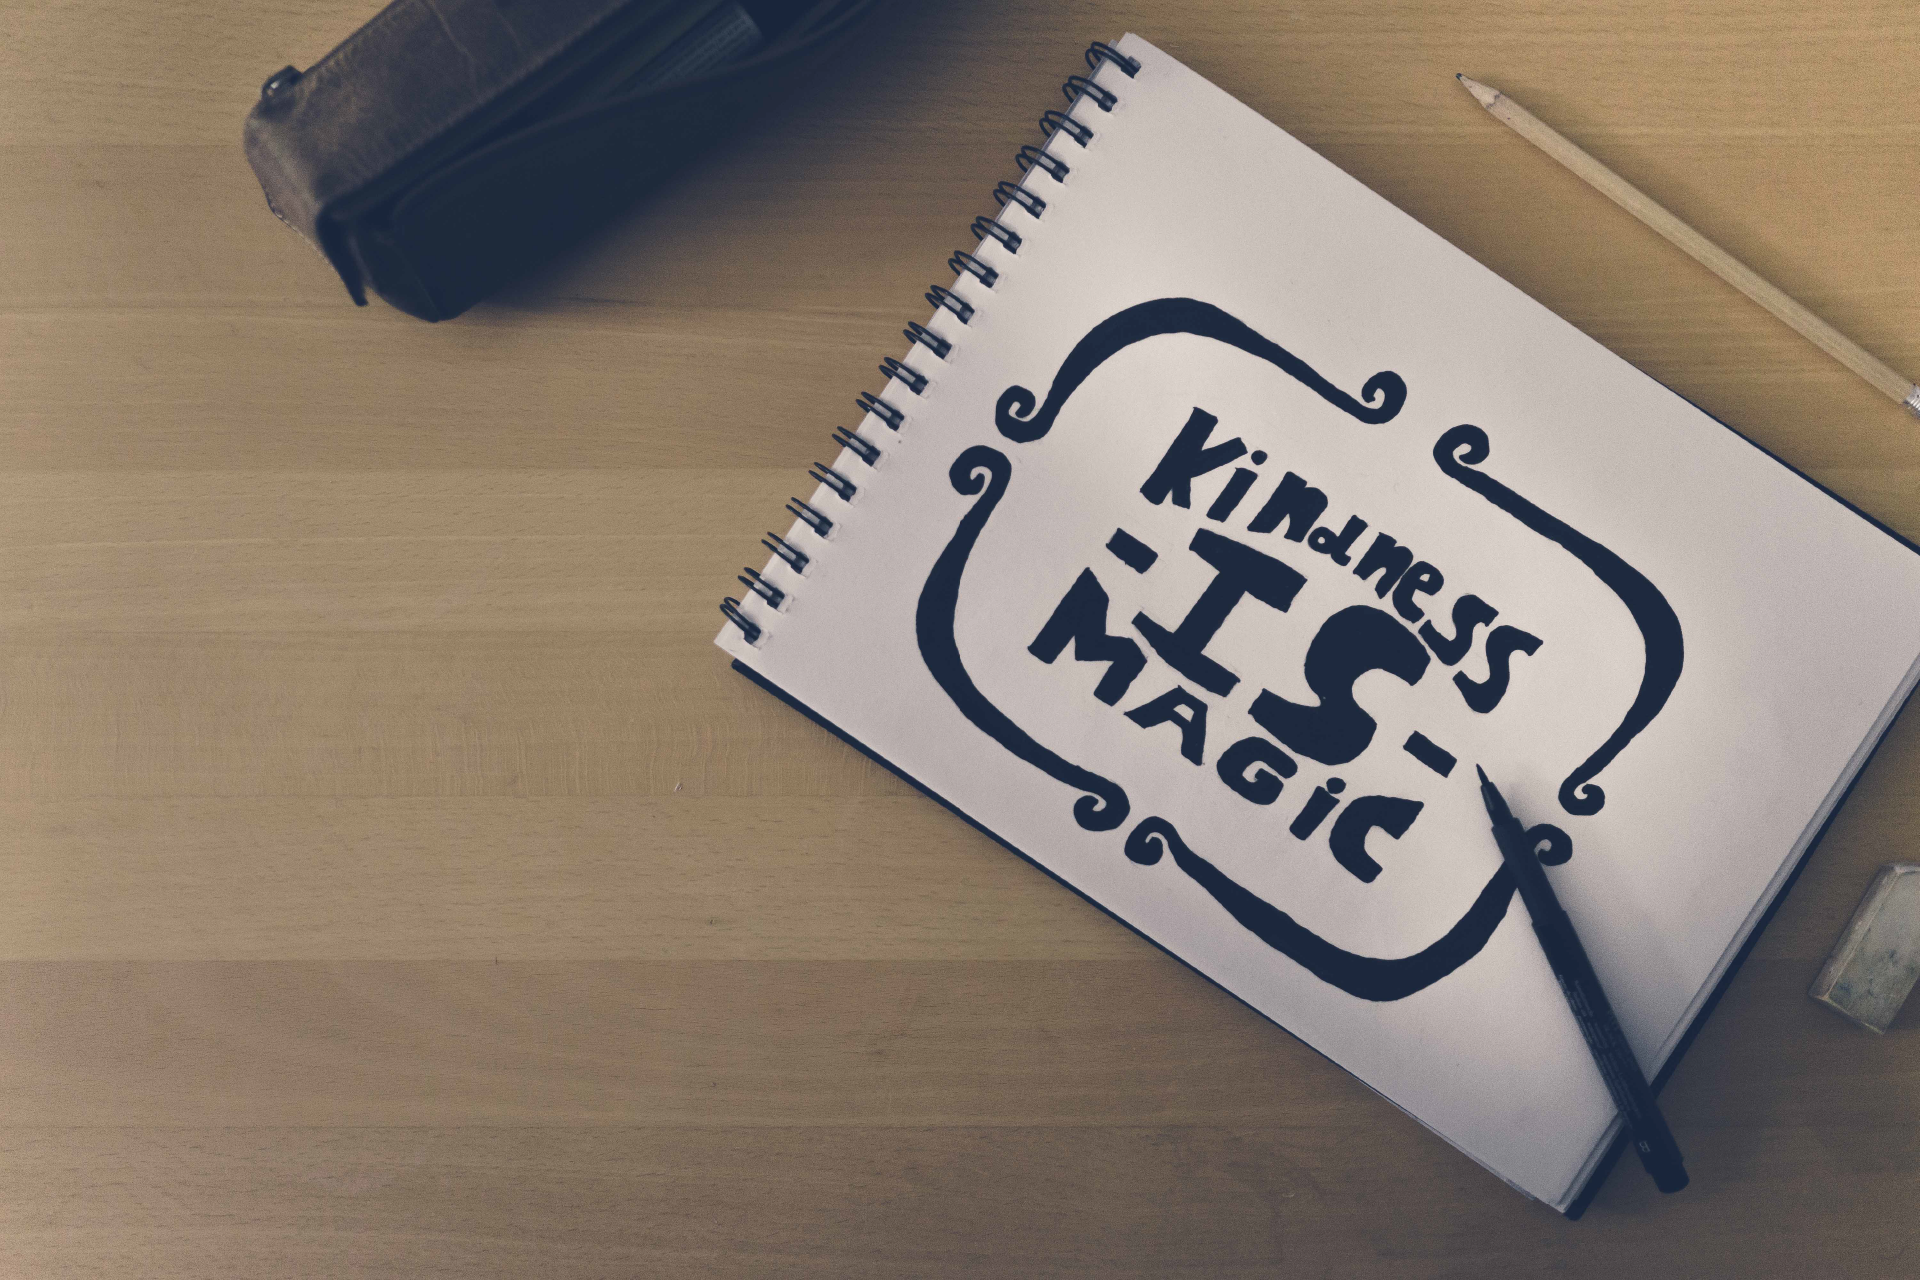 Kindness
-IS-
MAGiC